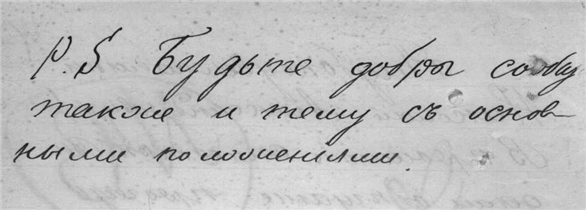 P.S Будьте добры сообщ
также и тему съ основ-
ными положениями.